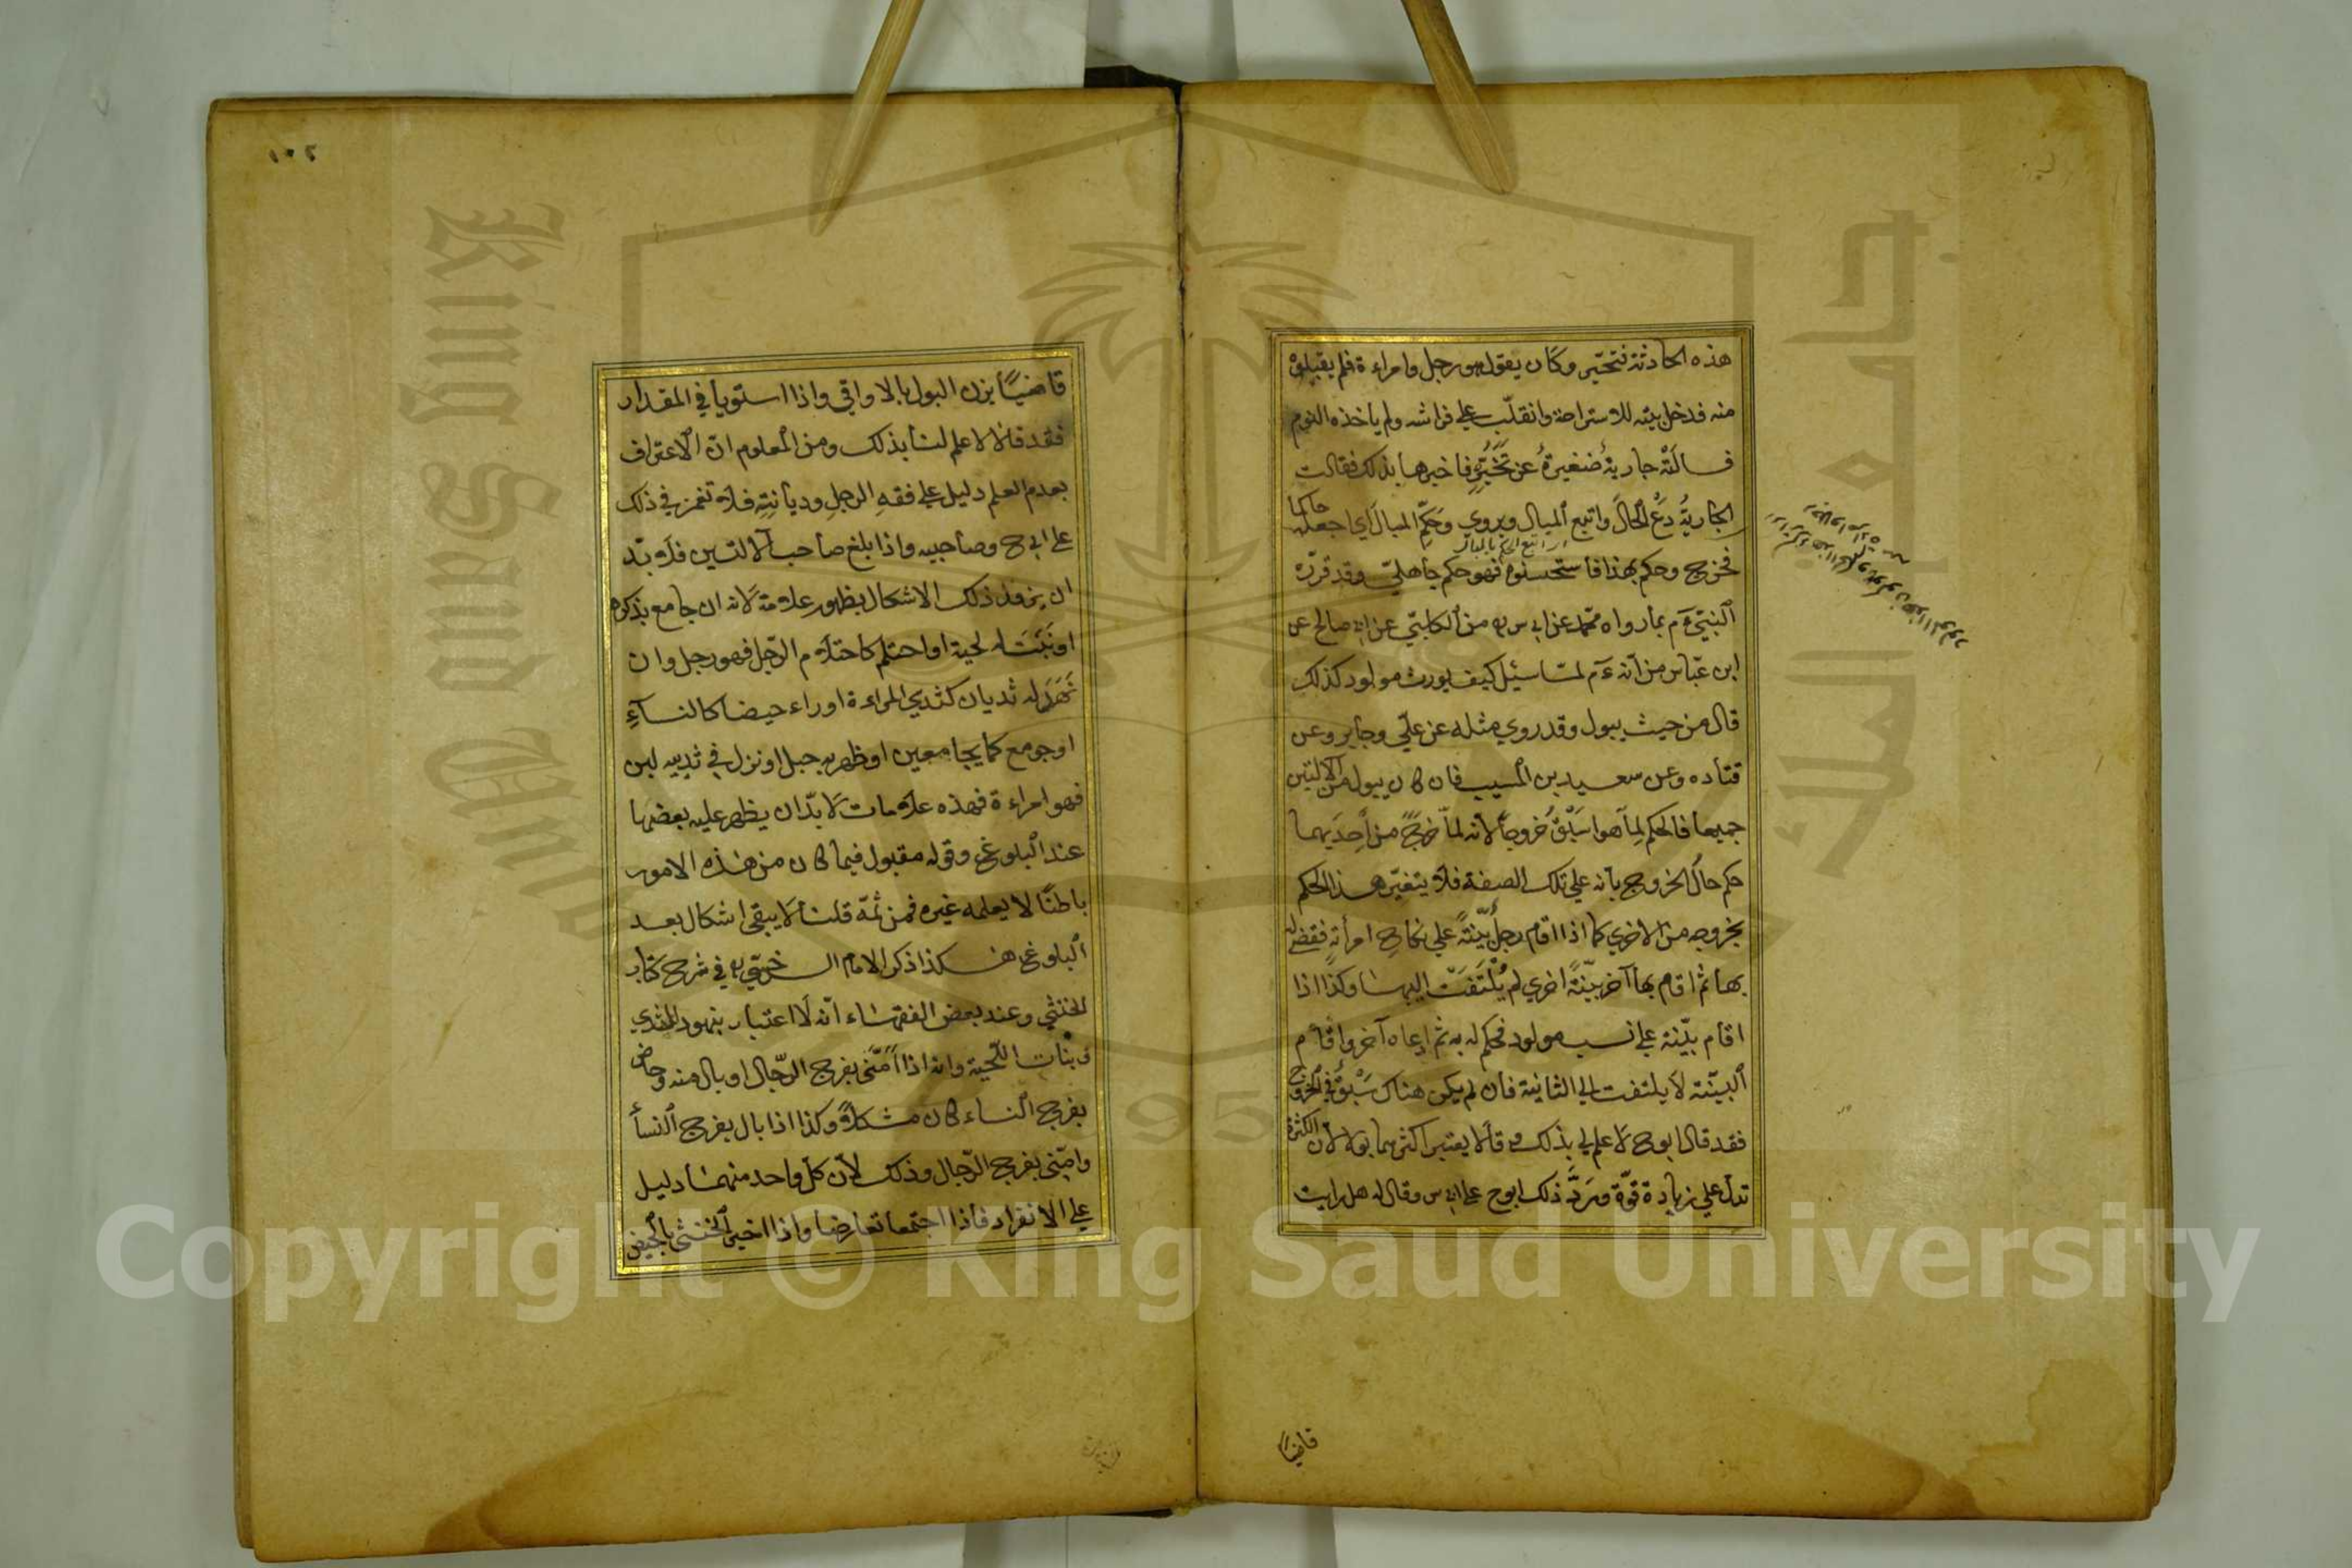 هذه الحادثة فتحيّر وكان يقول هو رجل وامراءة فلم يقبلوا
منه فدخل بيته للاستراحة وانقلب على فراشه ولم يأخذه النوم
فسالَتْه جاريةٌ صغيرةٌ عن تَحَيُّرِهِ فاخبرها بذلك فقالت
الجاريةُ دَعْ الحالَ واتبع المبال ويروي وحَكِّمِ المبالَ اي اجعله حاكما
فخرج وحكم بهذا فاستحسنوه فهو حكم جاهليّ وقد قرّره
النبيّ عم بما رواه محمّد عن ابي س ره من الكلبيّ عن ابي صالح عن
ابن عبّاس من انه عم لمّا سئيل كيف يورث مولود كذلك
قال من حيث يبول وقد روي مثله عن عليّ وجابر وعن
قتاده وعن سعيد بن المسيب فان كان يبول من الالتين
جميعا فالحكم لِما هو اسْبَقُ خُروجاً لانه لمّا خرج من اِحديهما
حكم حال الخروج بانه علي تلك الصفة فلا يتغيّر هذا الحكم
بخروجه من الاخري كما اذا اقام رجلٌ بيّنةً علي نكاح امرأةٍ فقضي له
بها ثم اقام بها آخر بيّنةً اخري لم يُلْتَفَتْ اليها وكذا اذا
اقام بيّنة علي نسب مولود فحكم له به ثم ادعاه آخر واقام
البيّنة لا يلتفت الي الثانية فان لم يكن هناك سَبْقٌ في الخروج
فقد قال ابوح لا علم لي بذلك وقالا يعتبر اكثرهما بولا لان الكثرة
تدل علي زيادة قوّة ورَدَّ ذلك ابوح علي ابي س وقال له هل رايت
قاضيًا
١٠٢
قاضيًا يزن البول بالاواقي واذا استويا في المقدار
فقد قالا لا علم لنا بذلك ومن المعلوم انّ الاعتراف
بعدم العلم دليل علي فقهِ الرجلِ وديانتِهِ فلا تغمز في ذلك
علي ابي ح وصاحبيه واذا بلغ صاحب الالتين فلا بدّ
ان يزول ذلك الاشكال بظهور علامة لانه ان جامع بذكره
او نَبَتَتْ له لحية او احتلم كاحتلام الرّجل فهو رجل وان
نَهَدَ له ثديان كثدي المراءة او راء حيضا كالنساءِ
او جومع كما يجامعهن او ظهر به حبل او نزل في ثدييه لبن
فهو امراءة فهذه علامات لا بدّ ان يظهر عليه بعضها
عند البلوغ وقوله مقبول فيما كان من هذه الامور
باطنًا لا يعلمه غيره فمن ثمّة قلنا لا يبقي اشكال بعد
البلوغ هكذا ذكر الامام السرخسي ره في شرح كتاب
الخنثي وعند بعض الفقهاء انّه لا اعتبار بنهود الثدي
ونبات اللّحية وانه اذا اَمْنَى بفرج الرّجال او بال منه وحاض
بفرج النساء كان مشكلاً وكذا اذا بال بفرج النسأ
وامني بفرج الرّجال وذلك لأن كل واحد منهما دليل
علي الانفراد فاذا اجتمعا تعارضا واذا اخبر الخنثى بالحيض
Copyright © King Saud University